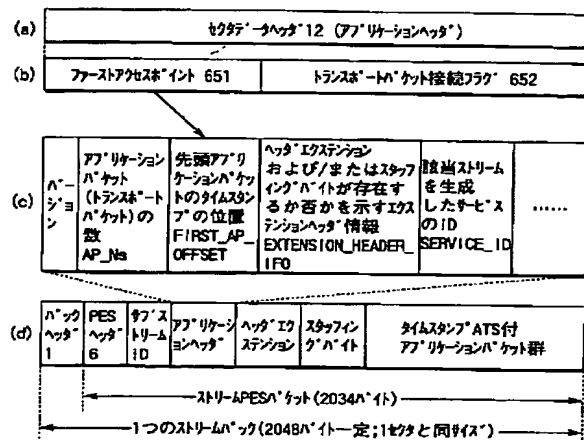 (a)
セクタデータヘッダ12 (アプリケーションヘッダ)
(b)
ファーストアクセスポイント 651
トランスポートパケット接続フラグ 652
(c)
バージョン
アプリケーション
パケット
(トランスポート
パケット)の
数
AP_Ns
先頭アプリ
ケーションパケッ
トのタイムスタ
ンプの位置
FIRST_AP_
OFFSET
ヘッダエクステンション
および/またはスタッフ
ィングバイトが存在す
るか否かを示すエクス
テンションヘッダ情報
EXTENSION_HEADER_
IFO
該当ストリーム
を生成
したサービス
のID
SERVICE_ID
......
(d)
パック
ヘッダ
1
PES
ヘッダ
6
サブス
トリーム
ID
アプリケーシ
ョンヘッダ
ヘッダエク
ステンション
スタッフィン
グバイト
タイムスタンプATS付
アプリケーションパケット群
ストリームPESパケット(2034バイト)
1つのストリームパック(2048バイト一定;1セクタと同サイズ)